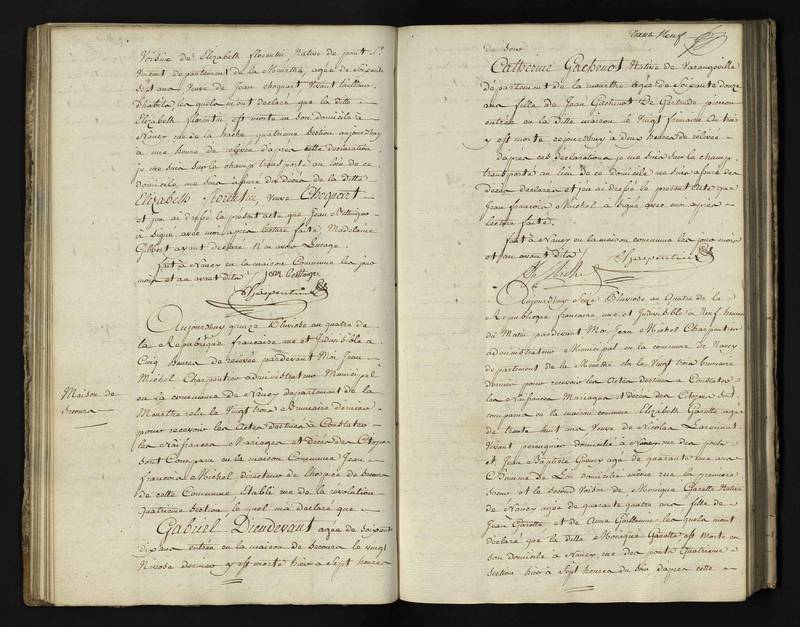 Voisine de Elizabeth florentin Native de pont St
Vincent departement de la Meurthe, agée de Soixante
Sept ans Veuve de Jean choquart Vivant tailleur
D'habits, lesquels m'ont declaré que la ditte
Elizabeth florentin est morte en son domicile à
Nancy rue de la hache quatrieme Section aujourdhuy
à une heure de relevée d'apres cette declaration
je me suis sur le champ transporté au lieu de ce
domicile me suis assuré du décès de la ditte
Elizabeth Florentin, Veuve Choquart
et j'en ai dressé le present acte que Jean
a Signé avec moi apres lecture faite, Madelaine
Gilbert ayant declaré n'en avoir l'usage.
fait à Nancy en la maison Commune les jour
mois et an avant dits
Charpentier
Aujourdhuy quinze Pluviose an quatre de
la Republique francaise une et Indivisible à
Cinq heures de relevée pardevant Moi Jean
Michel Charpentier administrateur Municipal
en la commune de Nancy departement de la
Meurthe élu le Vingt trois Brumaire dernier
pour recevoir les Actes destinés à Constater
les Naissances Mariages et Décès des Citoyens
Sont Comparu en la maison Commune Jean
francois Michel, directeur de l'hospice de Secours
de cette Commune, Etabli rue de la révolution
quatrieme Section, lequel m'a declaré que
Gabriel Dieudevant agée de Soixante
dix ans entrée en la maison de Secours le vingt
Nivose dernier y est morte hier à Sept heures
Maison de
Secours
Vingt Neuf
du Soir
Catherine Gachenot Native de Varangeville
departement de la meurthe agée de Soixante douze
ans fille de Jean Gachenot De Gertrude pierson
entrée en la Ditte maison le Vingt frimaire an trois
y est morte cejourdhuy à deux heures de relevée
d'apres ces declarations je me suis sur le champ
transporté au lieu de ce domicile me suis assuré des
décès declarés et j'en ai dressé le present Acte que
Jean francois Michel a Signé avec moi apres
lecture faite.
fait à Nancy en la maison commune les jour mois
et an avant dits
Charpentier
Aujourdhuy Seize Pluviose an Quatre de la
Republique francaise une et Indivisible à Neuf heures
du Matin pardevant Moi Jean Michel Charpentier
administrateur Municipal en la commune de Nancy
departement de la Meurthe élu le Vingt trois brumaire
dernier pour recevoir les Actes destinés à Constater
les Naissances Mariages et décès des Citoyens Sont
comparu en la maison commune Elizabeth Garotte agée
de trente huit ans Veuve de Nicolas
Vivant perruquier domicilié à Nancy rue des ponts
et Jean Baptiste agé de quarante un ans
homme de Loi domicilié même rue la premiere
Soeur et le Second Voisin de Monique Garotte Native
de Nancy agée de quarante quatre ans fille de
Jean Garotte et de Anne Guillaume lesquels m'ont
declaré que la ditte Monique Garotte est Morte en
son domicile à Nancy, rue des ponts Quatrieme
Section hier à Sept heures du Soir d'apres cette